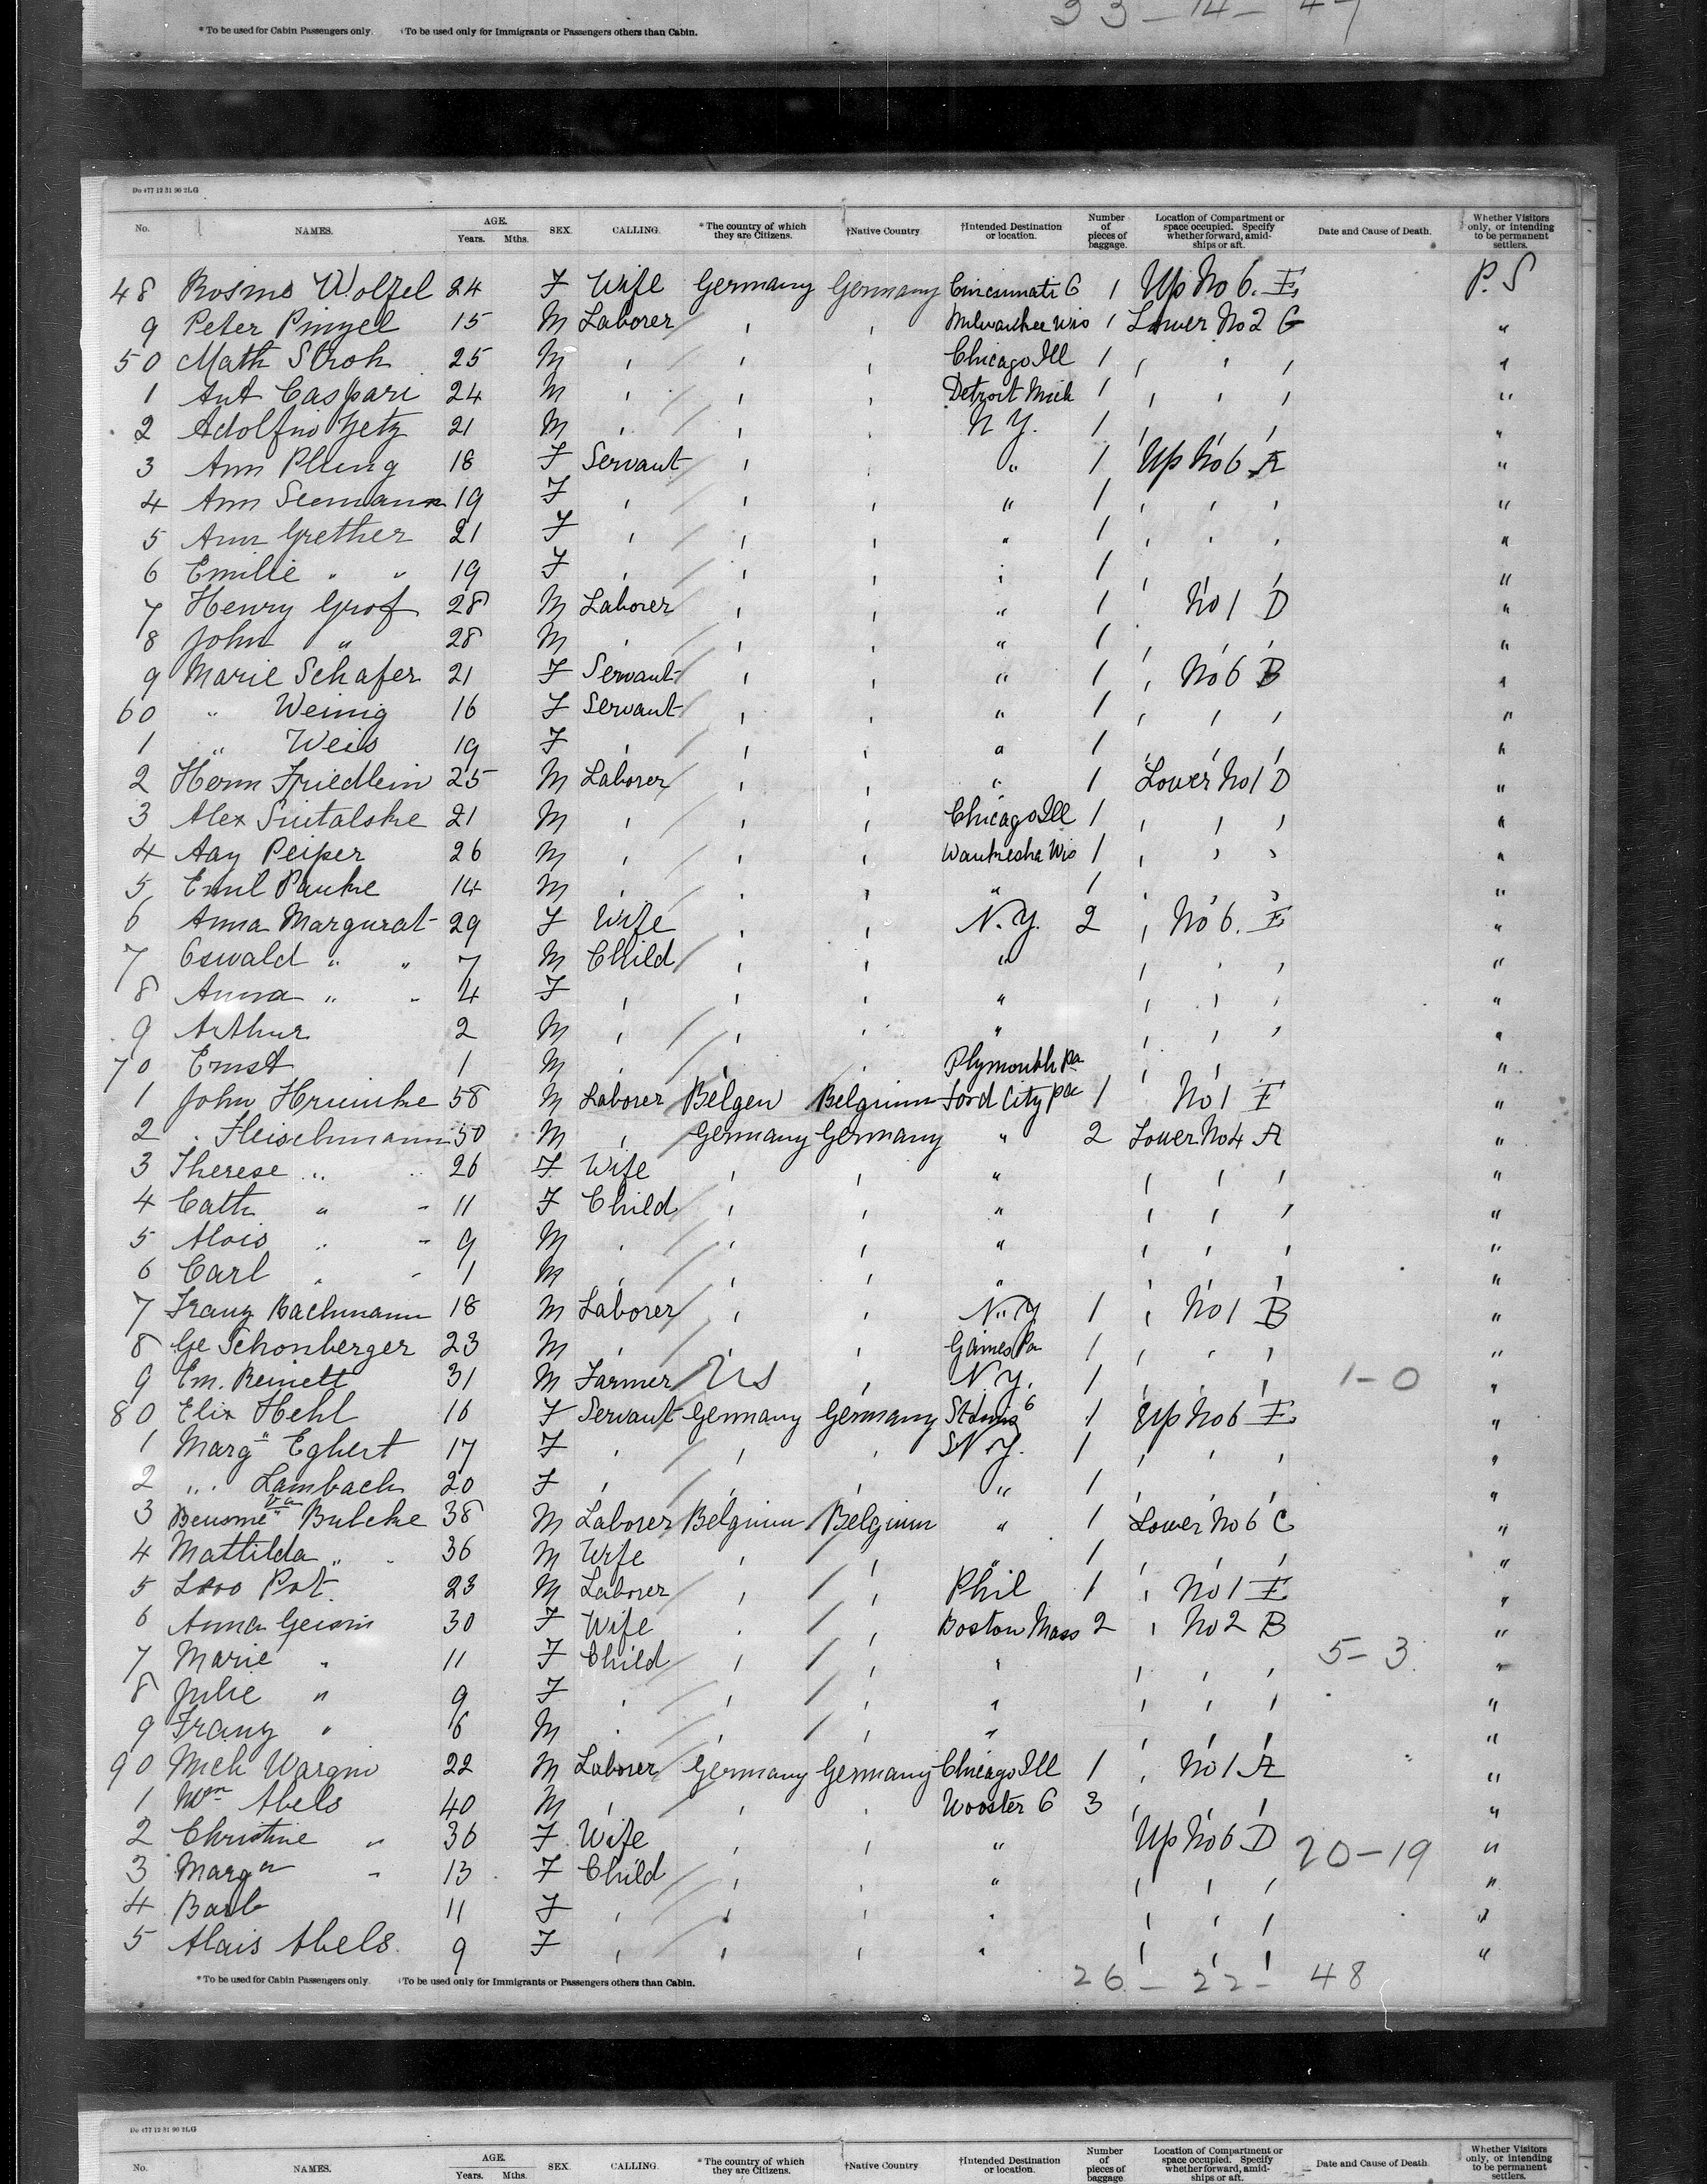 33 - 14 - 47
* To be used for Cabin Passengers only. †To be used only for Immigrants or Passengers others than Cabin.
Do 477 12 31 90 2LG
No. NAMES. AGE. Years. Mths. SEX. CALLING. * The country of which they are Citizens. †Native Country. †Intended Destination or location. Number of pieces of baggage. Location of Compartment or space occupied. Specify whether forward, amid-ships or aft. Date and Cause of Death. Whether Visitors only, or intending to be permanent settlers.
48 Rosine Wolfel 24 F Wife Germany Germany Cincinnati O 1 Up No 6. E P. S
9 Peter Pinzel 15 M Laborer , , Milwaukee Wis 1 Lower No 2 G "
50 Math Stroh 25 M , , , Chicago Ill 1 , , , "
1 Ant Caspari 24 M , , , Detroit Mich 1 , , , "
2 Adolfino Getz 21 M , , , N Y. 1 , , , "
3 Ann Pleng 18 F Servant , , " 1 Up No 6 A "
4 Ann Seemann 19 F , , , " 1 , , , "
5 Ann Grether 21 F , , , " 1 , , , "
6 Emilie " " 19 F , , , " 1 , , , "
7 Henry Grof 28 M Laborer , , " 1 No 1 D "
8 John " 28 M , , , " 1 , , , "
9 Marie Schafer 21 F Servant , , " 1 , No 6 B "
60 " Weinig 16 F Servant , , " 1 , , , "
1 " Weis 19 F , , , " 1 , , , "
2 Herm Friedlein 25 M Laborer , , " 1 Lower No 1 D "
3 Alex Sutalske 21 M , , , Chicago Ill 1 , , , "
4 Aay Peiper 26 M , , , Waukesha Wis 1 , , , "
5 Emil Pauke 14 M , , , " 1 , , , "
6 Anna Margurat 29 F Wife , , N. Y. 2 , No 6. E "
7 Oswald " " 7 M Child , , " , , , "
8 Anna " " 4 F , , , " , , , "
9 Arthur 2 M , , , " , , , "
70 Ernst 1 M , , , Plymouth Pa , , "
1 John Hrumke 58 M Laborer Belgen Belgium Ford City Pa 1 No 1 E "
2 " Fleischmann 50 M , Germany Germany " 2 Lower No 4 A "
3 Therese " " 26 F Wife , , " , , , "
4 Cath " " 11 F Child , , " , , , "
5 Alois " " 9 M , , , " , , , "
6 Carl " " 1 M , , , " , , , "
7 Franz Bachmann 18 M Laborer , , N. Y 1 , No 1 B "
8 Ge Schonberger 23 M , , , Gaines Pa 1 , , , "
9 Em. Reinett 31 M Farmer U S , N Y. 1 , , , 1 - 0 "
80 Elis Hehl 16 F Servant Germany Germany 1 Up No 6 E "
1 Marg " Egbert 17 F , , , N Y. 1 , , , "
2 " Lambach 20 F , , , " 1 , , , "
3 Bulcke 38 M Laborer Belgium Belgium " 1 Lower No 6 C "
4 Mattilda " " 36 M Wife , , " 1 , , , "
5 Pot 23 M Laborer , , Phil 1 , No 1 E "
6 Anna Geisni 30 F Wife , , Boston Mass 2 , No 2 B "
7 Marie " 11 F Child , , , , , , 5 - 3 "
8 Julie " 9 F , , , , , , , "
9 Franz " 6 M , , , , , , , "
90 Mich Wargin 22 M Laborer Germany Germany Chicago Ill 1 , No 1 A "
1 Wm Abels 40 M , , , Wooster O 3 , , , "
2 Christine " 36 F Wife , , " Up No 6 D 20 - 19 "
3 Marg " 13 F Child , , " , , , "
4 Barb 11 F , , , " , , , "
5 Alais Abels. 9 F , , , " , , , "
* To be used for Cabin Passengers only. †To be used only for Immigrants or Passengers others than Cabin.
26 - 22 - 48
Do 477 12 31 90 2LG
No. NAMES. AGE. Years. Mths. SEX. CALLING. * The country of which they are Citizens. †Native Country. †Intended Destination or location. Number of pieces of baggage. Location of Compartment or space occupied. Specify whether forward, amid-ships or aft. Date and Cause of Death. Whether Visitors only, or intending to be permanent settlers.